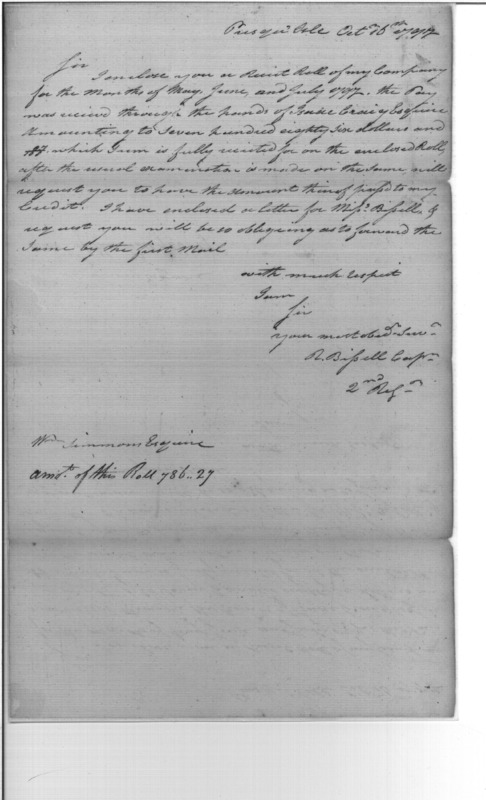 Presqu' Isle Octr 16th 1797
Sir
I enclose you a Receit Roll of my Company
for the Months of May, June, and July 1797. the Pay
was receivd through the hands of Isaac Craig Esquire
Amounting to Seven hundred eighty Six dollars and
which Sum is fully receited for on the enclosed Roll,
after the usual examination is made on the Same will
request you to have the amount thereof passd to my
Credit. I have enclosed a letter for Mrs. Bissell, &
request you will be so obligeing as to forward the
Same by the first Mail
with much respect
I am
Sir
your most obedt Servt
R. Bissell Capt
2nd Regt
Wm Simmons Esquire
amot. of this Roll 786..27